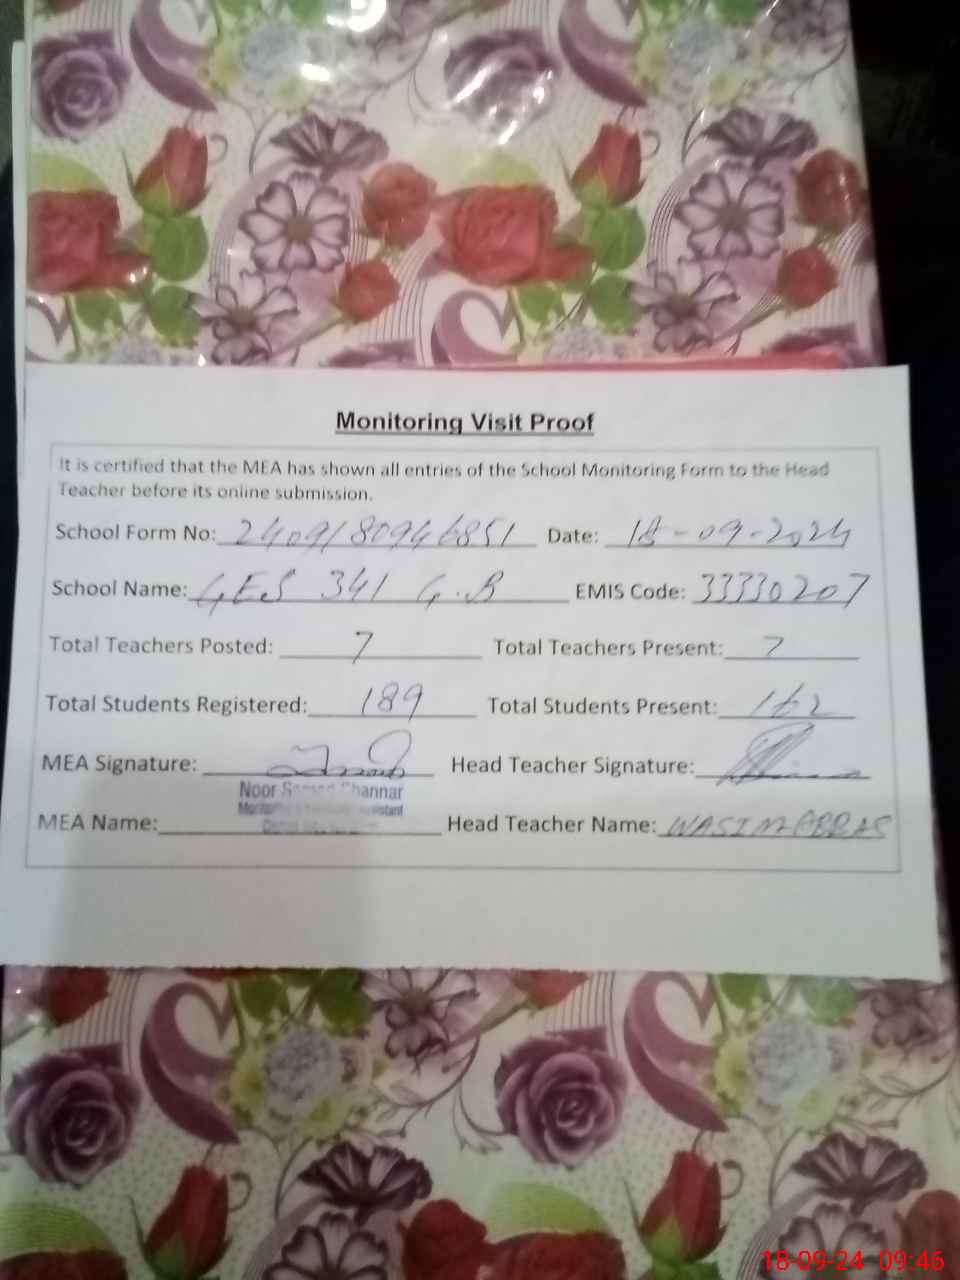 Monitoring Visit Proof
It is certified that the MEA has shown all entries of the School Monitoring Form to the Head
Teacher before its online submission.
School Form No: 2409180946851 Date: 18-09-2024
School Name: GES 341 G.B EMIS Code: 33330207
Total Teachers Posted: 7 Total Teachers Present: 7
Total Students Registered: 189 Total Students Present: 162
MEA Signature: Head Teacher Signature:
Noor Channar
MEA Name: Head Teacher Name: WASIM ABBAS
18-09-24 09:46